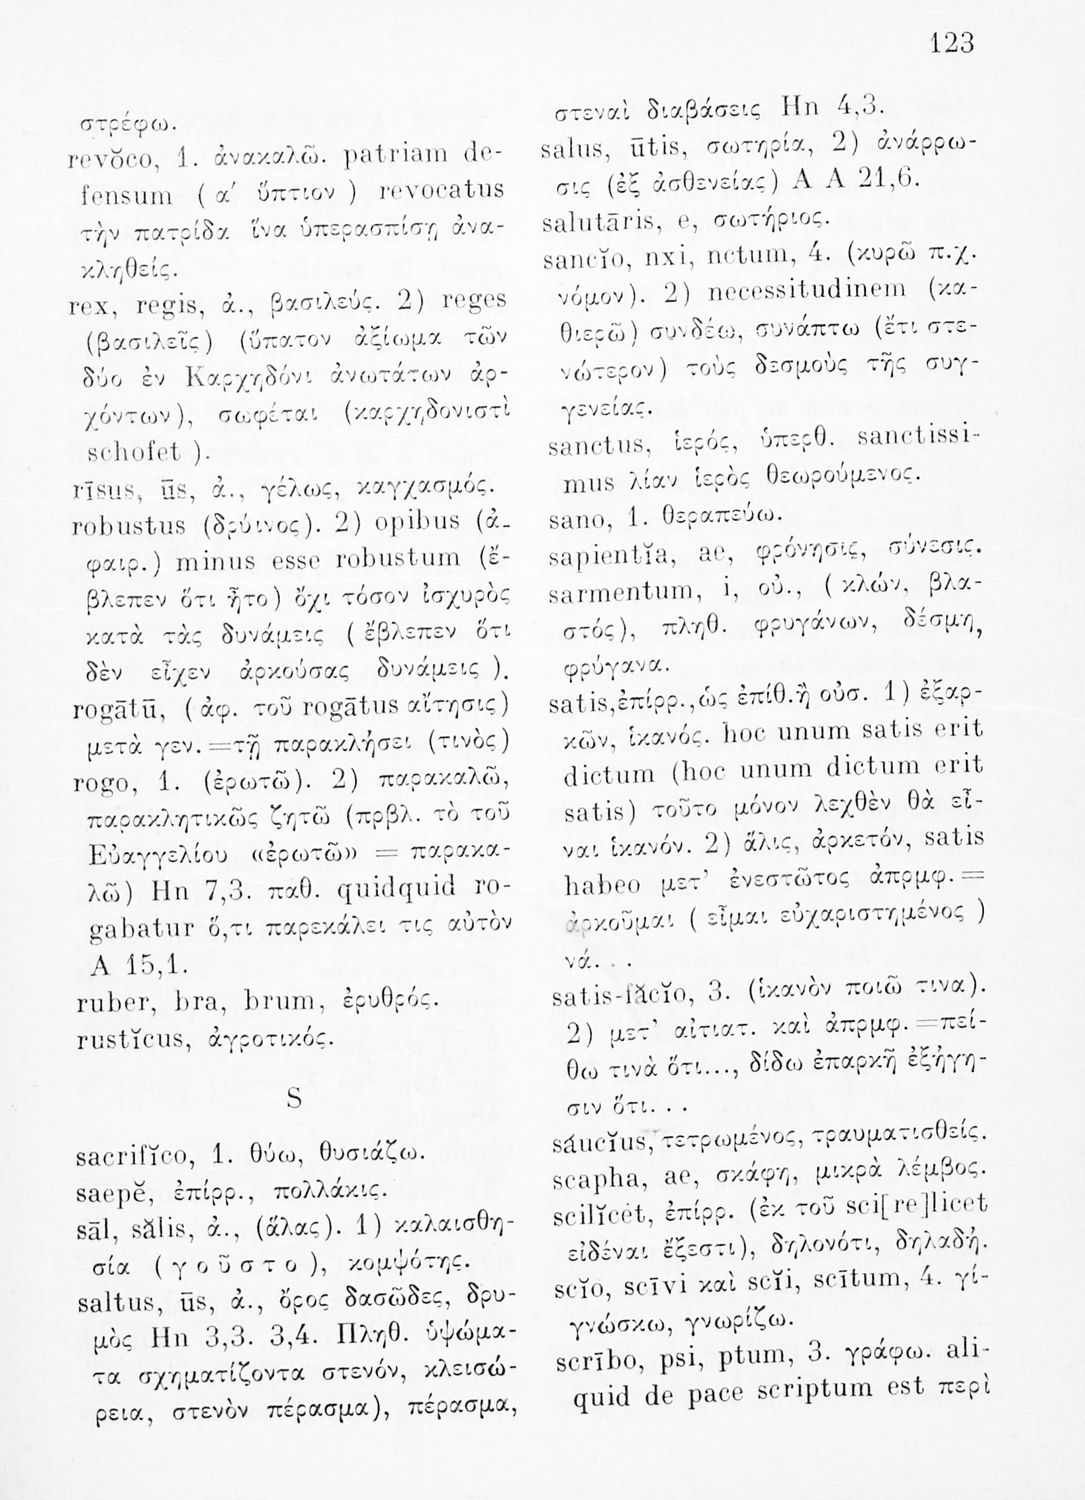 123
στρέφω.
revŏco, 1. ἀνακαλῶ. patriam de-
fensum ( α΄ ὕπτιον ) revocatus
τὴν πατρίδα ἵνα ὑπερασπίσῃ ἀνα-
κληθείς.
rex, regis, ἀ., βασιλεύς. 2) reges
(βασιλεῖς) (ὕπατον ἀξίωμα τῶν
δύο ἐν Καρχηδόνι ἀνωτάτων ἀρ-
χόντων), σωφέται (καρχηδονιστὶ
schofet ).
rīsus, ūs, ἀ., γέλως, καγχασμός.
robustus (δρύινος). 2) opibus (ἀ-
φαιρ.) minus esse robustum (ἔ-
βλεπεν ὅτι ἦτο) ὄχι τόσον ἰσχυρὸς
κατὰ τὰς δυνάμεις ( ἔβλεπεν ὅτι
δὲν εἶχεν ἀρκούσας δυνάμεις ).
rogātū, ( ἀφ. τοῦ rogātus αἴτησις)
μετὰ γεν.=τῇ παρακλήσει (τινὸς)
rogo, 1. (ἐρωτῶ). 2) παρακαλῶ,
παρακλητικῶς ζητῶ (πρβλ. τὸ τοῦ
Εὐαγγελίου «ἐρωτῶ» = παρακα-
λῶ) Hn 7,3. παθ. quidquid ro-
gabatur ὅ,τι παρεκάλει τις αὐτὸν
A 15,1.
ruber, bra, brum, ἐρυθρός.
rustĭcus, ἀγροτικός.
S
sacrifĭco, 1. θύω, θυσιάζω.
saepĕ, ἐπίρρ., πολλάκις.
sāl, sălis, ἀ., (ἅλας). 1) καλαισθη-
σία ( γ ο ῦ σ τ ο ), κομψότης.
saltus, ūs, ἀ., ὄρος δασῶδες, δρυ-
μὸς Hn 3,3. 3,4. Πληθ. ὑψώμα-
τα σχηματίζοντα στενόν, κλεισώ-
ρεια, στενὸν πέρασμα), πέρασμα,
στεναὶ διαβάσεις Hn 4,3.
salus, ūtis, σωτηρία, 2) ἀνάρρω-
σις (ἐξ ἀσθενείας) A A 21,6.
salutāris, e, σωτήριος.
sancĭo, nxi, nctum, 4. (κυρῶ π.χ.
νόμον). 2) necessitudinem (κα-
θιερῶ) συνδέω, συνάπτω (ἔτι στε-
νώτερον) τοὺς δεσμοὺς τῆς συγ-
γενείας.
sanctus, ἱερός, ὑπερθ. sanctissi-
mus λίαν ἱερὸς θεωρούμενος.
sano, 1. θεραπεύω.
sapientĭa, ae, φρόνησις, σύνεσις.
sarmentum, i, οὐ., ( κλών, βλα-
στός), πληθ. φρυγάνων, δέσμη,
φρύγανα.
satis,ἐπίρρ.,ὡς ἐπίθ.ἢ οὐσ. 1) ἐξαρ-
κῶν, ἱκανός. hoc unum satis erit
dictum (hoc unum dictum erit
satis) τοῦτο μόνον λεχθὲν θὰ εἶ-
ναι ἱκανόν. 2) ἅλις, ἀρκετόν, satis
habeo μετ᾽ ἐνεστῶτος ἀπρμφ.=
ἀρκοῦμαι ( εἶμαι εὐχαριστημένος )
νά. . .
satis-făcĭo, 3. (ἱκανὸν ποιῶ τινα).
2) μετ᾽ αἰτιατ. καὶ ἀπρμφ.=πεί-
θω τινὰ ὅτι..., δίδω ἐπαρκῆ ἐξήγη-
σιν ὅτι. . .
saucĭus, τετρωμένος, τραυματισθείς.
scapha, ae, σκάφη, μικρὰ λέμβος.
scilĭcet, ἐπίρρ. (ἐκ τοῦ sci[re]licet
εἰδέναι ἔξεστι), δηλονότι, δηλαδή.
scĭo, scīvi καὶ scĭi, scītum, 4. γί-
γνώσκω, γνωρίζω.
scrībo, psi, ptum, 3. γράφω. ali-
quid de pace scriptum est περὶ